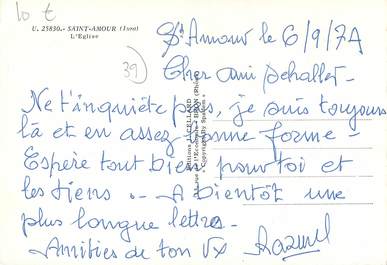 10 t
U. 25830. - SAINT-AMOUR (Jura)
L'Eglise
39
St Amour le 6/9/74
Cher ami Dehallet -
Ne t'inquiète pas, je suis toujours
là et en assez bonne forme -
Espère tout bien pour toi et
les tiens .- A bientôt une
plus longue lettre -
Amitiés de ton Vx